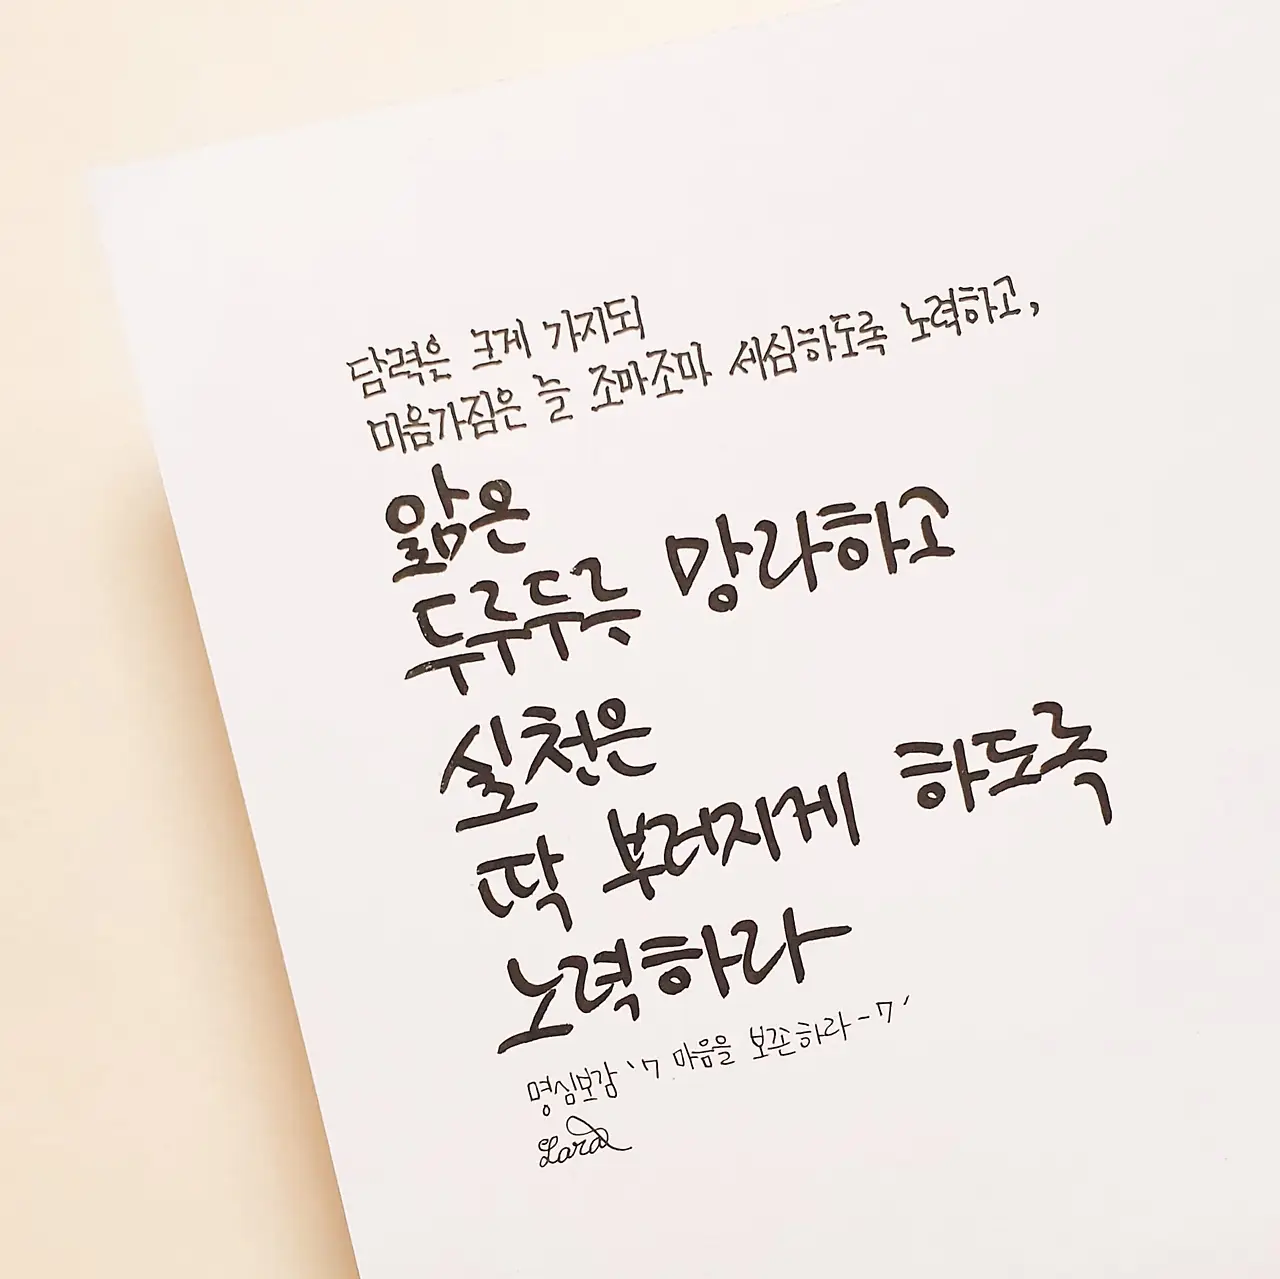 담력은 크게 가지되
마음가짐은 늘 조마조마 세심하도록 노력하고,
앎은
두루두룻 망라하고
실천은
딱 부러지게 하도록
노력하라
명심보감 '7 마음을 보존하라-7'
Lara